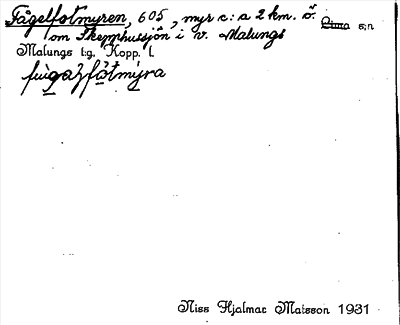 Fågelfotmyren, 605, myr c:a 2 km. ö.
om Skepphussjön i v. Malungs s:n
Malungs t:g, Kopp. l.
Niss Hjalmar Matsson 1931